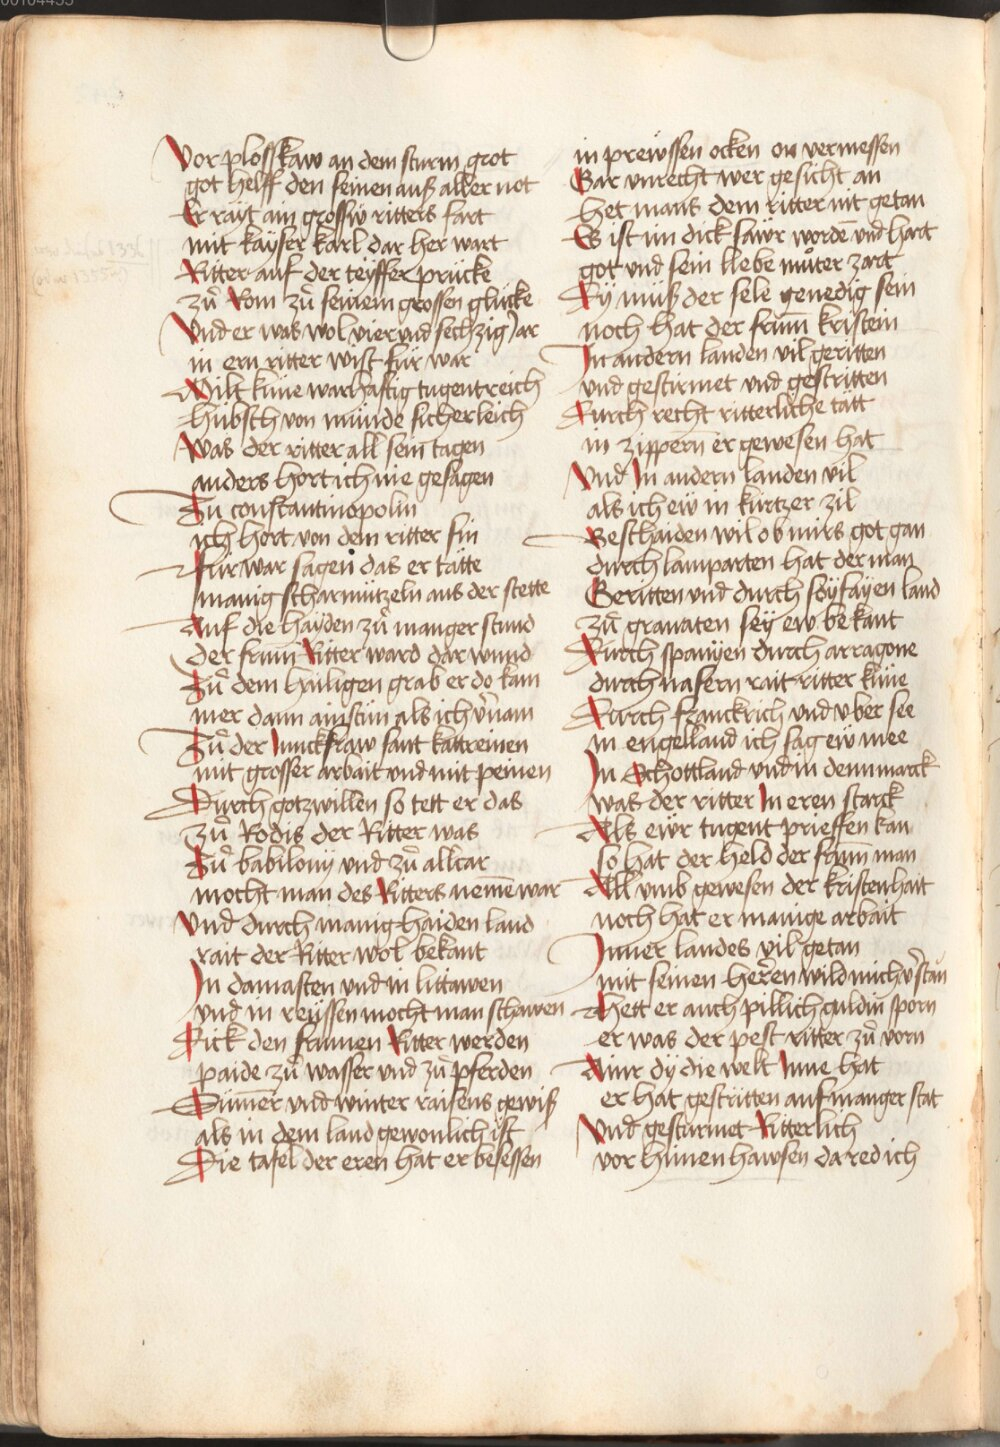 Vor plosskaw an dem sturm grot
got helff den seinen auß aller not
Er rayt ain grossiv ritters fart
mit kayser karl dar her wart
Ritter auf der teyffer prucke
zů Rom zů seinem grossen glucke
Und er was wol vier und sechzig Jar
in ern ritter wist fur war
Milt kune warhafftig tugentreich
hubsch von munde sicherleich
Was der ritter all sein tagen
anders hort ich nie gesagen
Zu constantinopolin
ich hort von dem ritter fin
Fur war sagen das er tätte
manig scharmützeln aus der stette
Auf die hayden zů manger stund
der frum Ritter ward dar wund
Zů dem hailigen grab er do kam
mer dann ainstun als ich v̉nam
Zů der Junckfraw sant kattreinen
mit grosser arbait und mit peinen
Durch gotz willen so tett er das
zů Rodis der Ritter was
Zů babilony und zů allcar
mocht man des Ritters nemē war
Und durch manig haiden land
rait der Ritter wol bekant
In damasten und in littawen
und in reyssen mocht man schawen
Dick den frumen Ritter werden
paide zů wasser und zů pferden
Sum̄er und winter raisens gewiß
als in dem land gewonlich ist
Die tafel der eren hat er besessen
in prewssen ocken on vermessen
Gar unrecht wer gesicht an
het mans dem ritter nit getan
Es ist im dick sawr wordē und hart
got und sein liebe muter zart
Dy muß der sele genedig sein
noch hat der frum kristein
In andern landen vil geritten
und gestirmet und gestritten
Durch recht ritterliche tätt
in zippern er gewesen hat
Und In andern landen vil
als ich ew in kurtzer zil
Beschaiden wil ob mirs got gan
durch lamparten hat der man
Geritten und durch soyfayen land
zů granaten sey ew bekant
Durch spanyen durch arragone
durch nafern rait ritter kune
Durch franckrich und uber see
in engelland ich sag ew mee
In Schottland und in dennmarck
was der ritter In eren starck
Als ewr tugent prieffen kan
so hat der held der frum̄ man
All umb gewesen der kristenhait
noch hat er manige arbait
Inner landes vil getan
mit seinen herēn wild mich v̉stan
Hett er auch pillich guldin sporn
er was der pest ritter zů vorn
Ainr dy die welt Inne hat
er hat gestritten auf manger stat
Und gesturmet Ritterlich
vor hunenhawsen da red ich